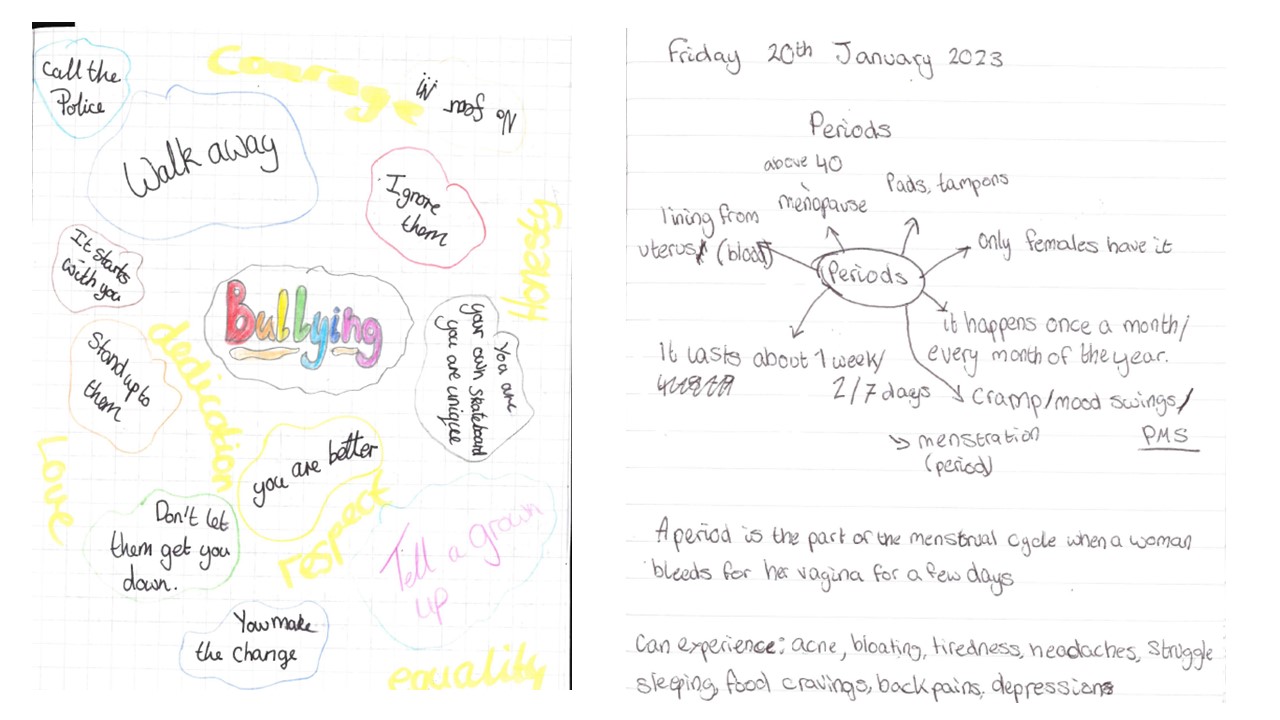 Call the
Police
Courage
No fear !!!
Walk away
Ignore
them
Honesty
It starts
with you
Bullying
You are
your own skateboard
you are unique
Stand up to
them
dedication
Love
you are better
respect
Don't let
them get you
down.
Tell a grown
up
You make
the change
equality
Friday 20th January 2023
Periods
above 40
menopause
Pads, tampons
lining from
uterus (blood)
only females have it
Periods
it happens once a month/
every month of the year.
It lasts about 1 week/
2/7 days
Cramp/mood swings/
PMS
menstration
(period)
A period is the part of the menstrual cycle when a woman
bleeds for her vagina for a few days
Can experience: acne, bloating, tiredness, headaches, struggle
sleeping, food cravings, back pains, depressions